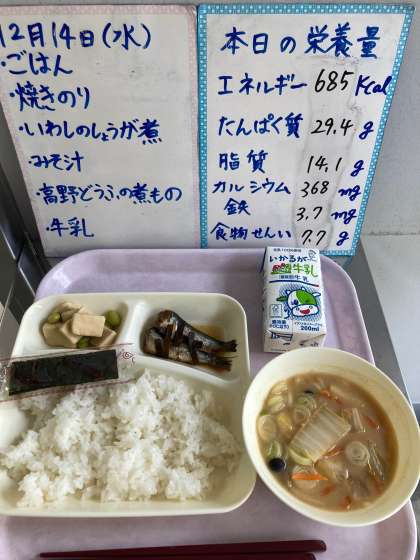 12月14日(水)
・ごはん
・焼きのり
・いわしのしょうが煮
・みそ汁
・高野どうふの煮もの
・牛乳
本日の栄養量
エネルギー 685 Kcal
たんぱく質 29.4 g
脂質 14.1 g
カルシウム 368 mg
鉄 3.7 mg
食物せんい 7.7 g
いかるが
牛乳
200ml